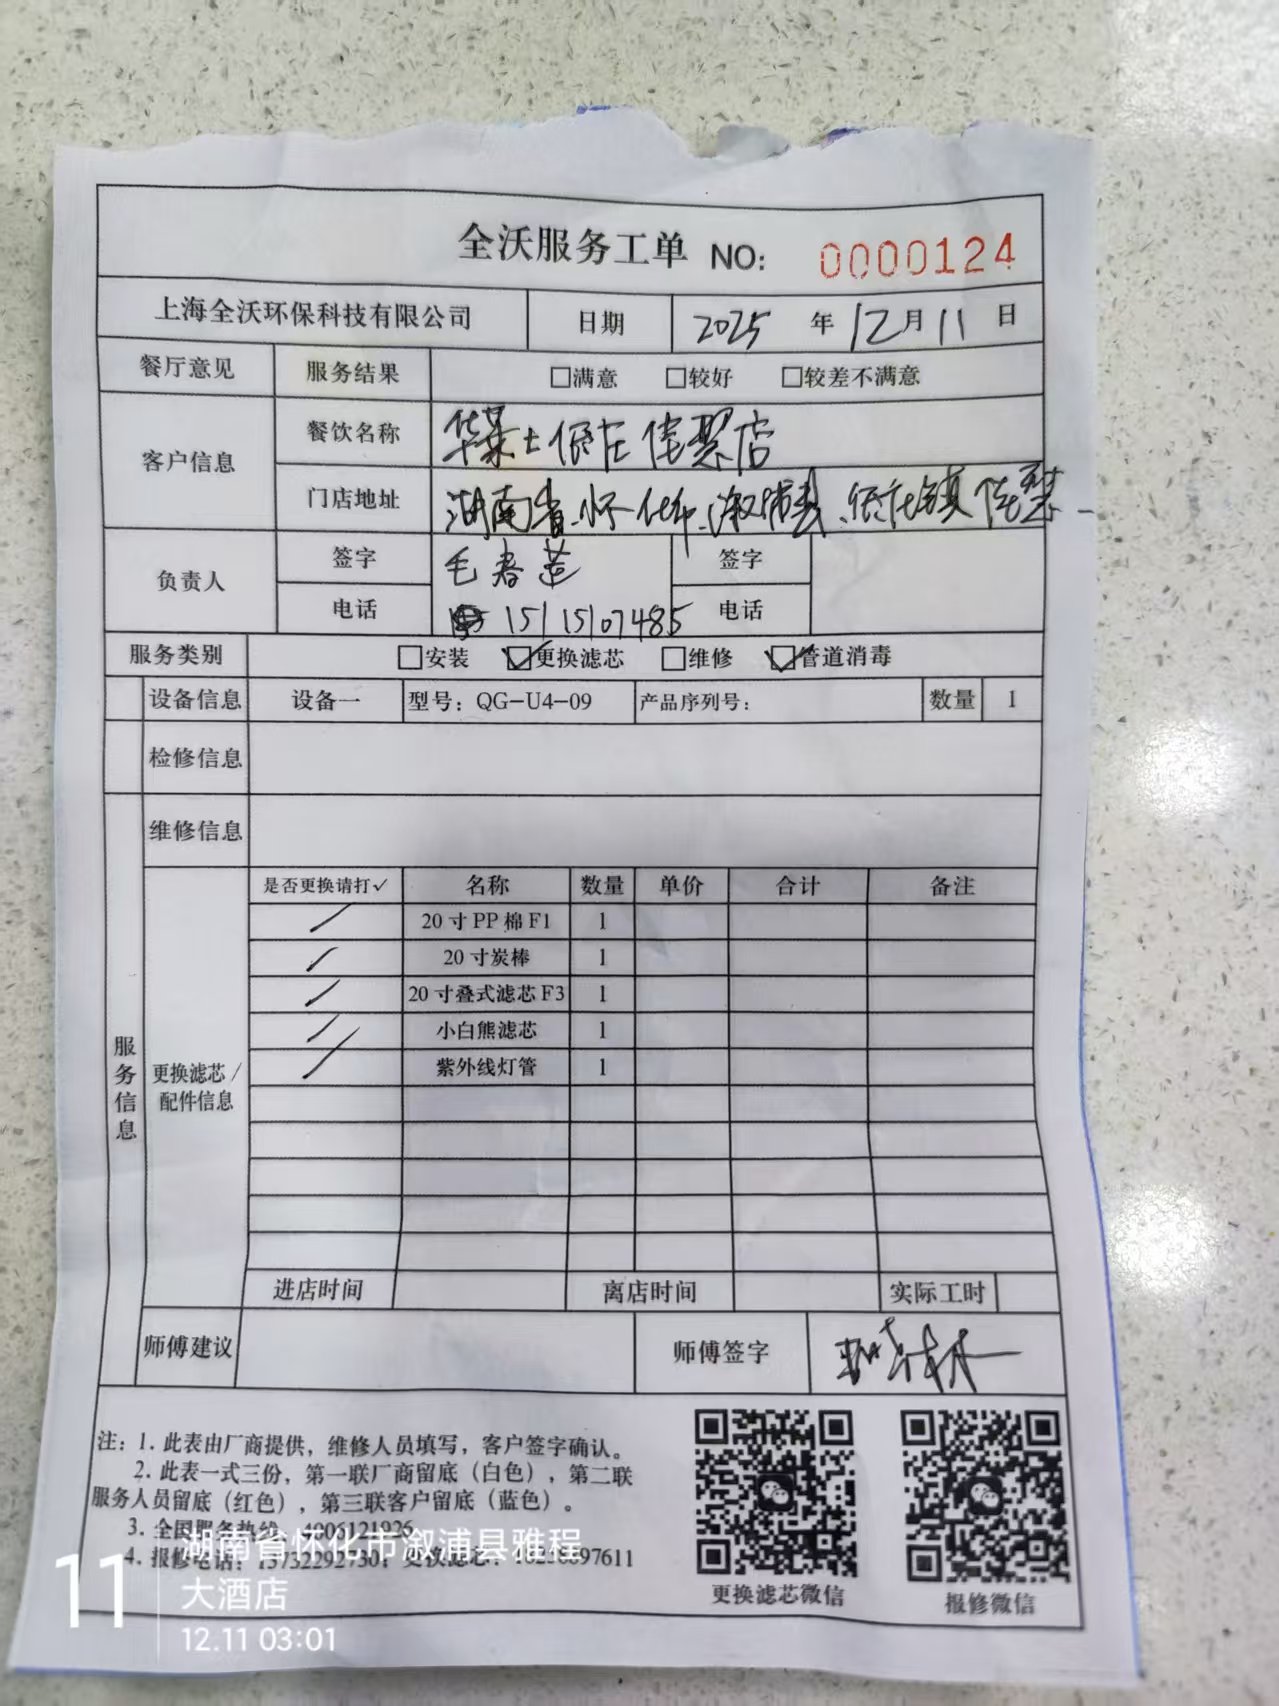 全沃服务工单 NO: 0000124
上海全沃环保科技有限公司 日期 2025 年 12 月 11 日
餐厅意见 服务结果 □满意 □较好 □较差不满意
客户信息 餐饮名称 华莱士低庄佳慧店
门店地址 湖南省怀化市溆浦县低庄镇佳慧
负责人 签字 毛春莲 签字
电话 15115107485 电话
服务类别 □安装 ☑更换滤芯 □维修 ☑管道消毒
设备信息 设备一 型号：QG-U4-09 产品序列号： 数量 1
检修信息
维修信息
服务信息
更换滤芯/配件信息
是否更换请打✓ 名称 数量 单价 合计 备注
20寸PP棉F1 1
20寸炭棒 1
20寸叠式滤芯F3 1
小白熊滤芯 1
紫外线灯管 1
进店时间 离店时间 实际工时
师傅建议 师傅签字
注：1. 此表由厂商提供，维修人员填写，客户签字确认。
2. 此表一式三份，第一联厂商留底（白色），第二联
服务人员留底（红色），第三联客户留底（蓝色）。
3. 全国服务热线：4006121926
4. 报修电话： 更换滤芯：
更换滤芯微信 报修微信
11
湖南省怀化市溆浦县雅程
大酒店
12.11 03:01